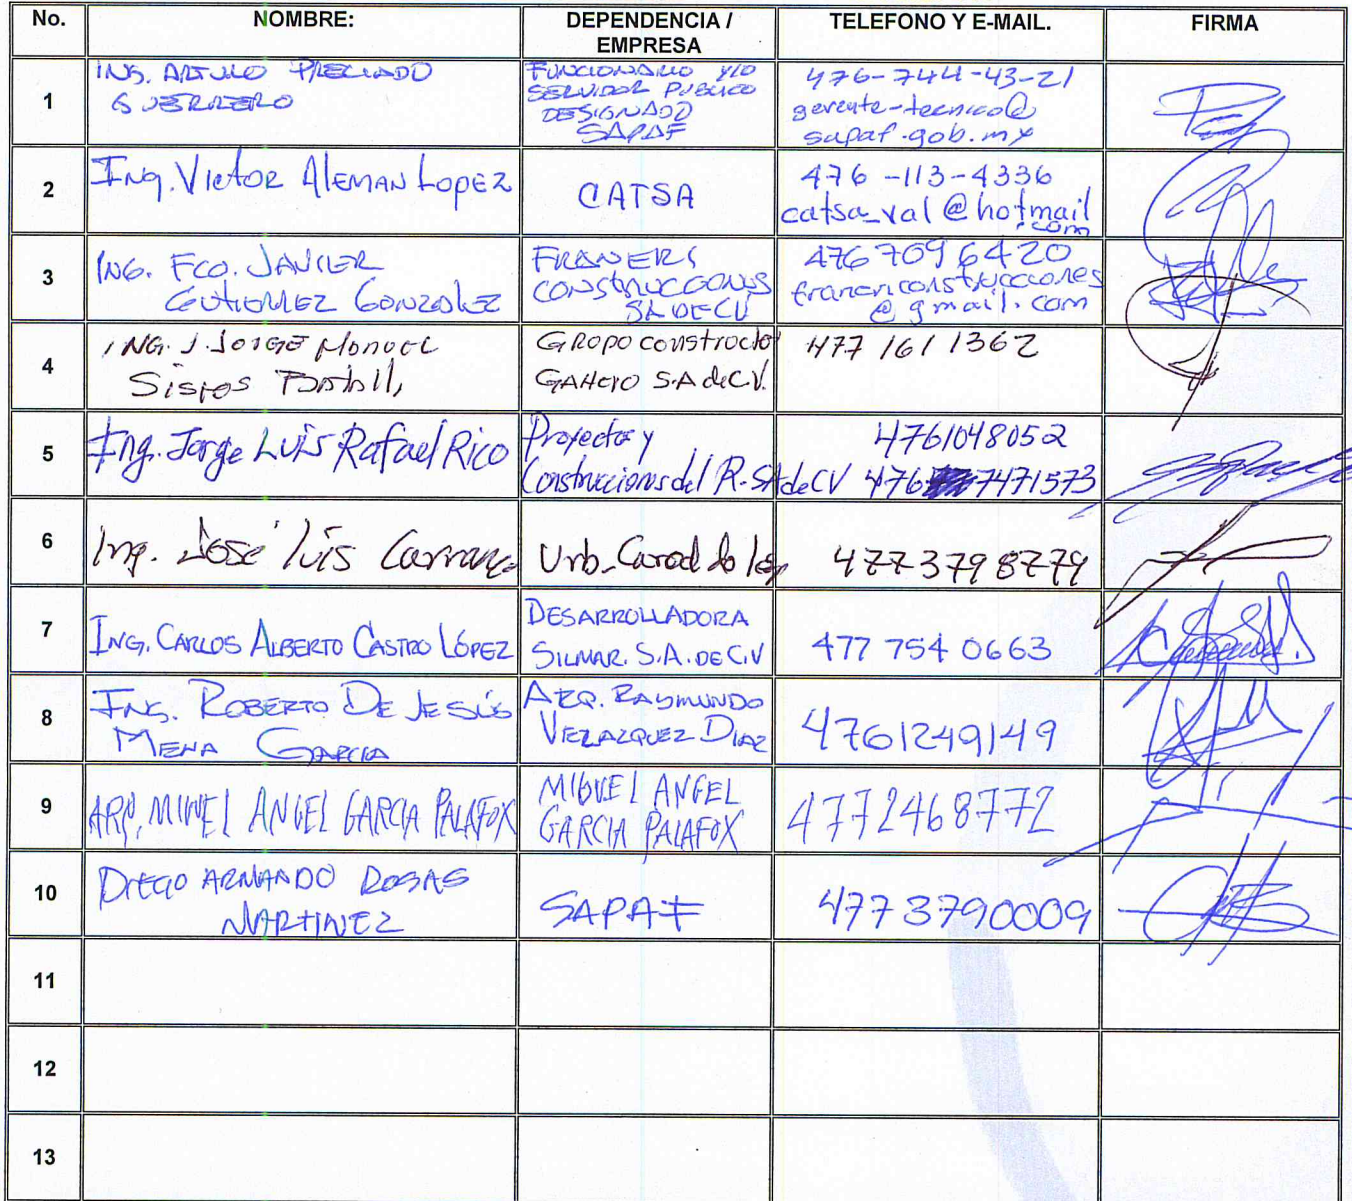 No. NOMBRE: DEPENDENCIA / EMPRESA TELEFONO Y E-MAIL. FIRMA
1 ING. ARTURO PRECIADO GUERRERO FUNCIONARIO Y/O SERVIDOR PUBLICO DESIGNADO SAPAF 476-744-43-21 gerente-tecnico@sapaf.gob.mx
2 Ing. Victor Aleman Lopez CATSA 476-113-4336 catsa_val@hotmail.com
3 ING. FCO. JAVIER GUTIERREZ GONZALEZ CONSTRUCCIONES SA DE CV 476 709 6420 @gmail.com
4 ING. J. JORGE Manuel GRUPO constructor S.A de C.V. 477 161 1362
5 Ing. Jorge Luis Rafael Rico Proyectos y Construcciones del R. SA de CV 4761048052 476 7471573
6 Ing. José Luis Urb. 477 379 8779
7 ING. CARLOS ALBERTO CASTRO LÓPEZ DESARROLLADORA SILMAR. S.A. DE C.V 477 754 0663
8 ING. ROBERTO DE JESÚS MENA GARCIA ARQ. RAYMUNDO VELAZQUEZ DIAZ 4761249149
9 ARQ. MIGUEL ANGEL GARCIA PALAFOX MIGUEL ANGEL GARCIA PALAFOX 4772468772
10 DIEGO ARMANDO ROSAS MARTINEZ SAPAF 477 3790009
11
12
13